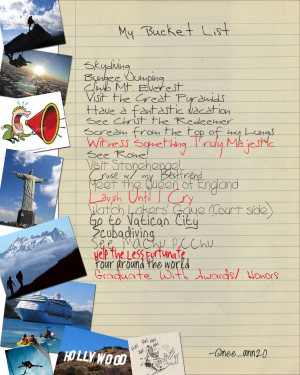 My Bucket List
Skydiving
Bungee Jumping
Climb Mt. Everest
Visit the Great Pyramids
Have a fantastic vacation
See Christ the Redeemer
Scream from the top of my Lungs
Witness Something Truly Majestic
See Rome!
Visit Stonehenge!
Cruse w/ my Bestfriend
Meet the Queen of England
Laugh Until I Cry
Watch Lakers' Game (Court side)
Go to Vatican City
Scubadiving
See Machu Picchu
Help the Less Fortunate
Tour around the world
Graduate With Awards/ Honors
HOLLYWOOD
-@nee_ann20